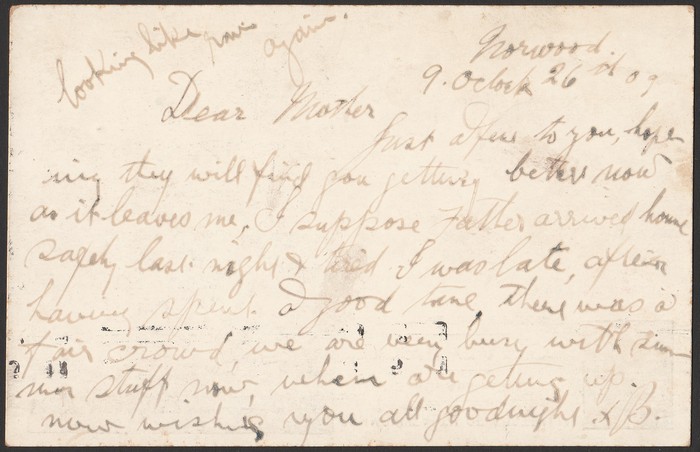 looking like rain
again.
Norwood.
9. Oclock 26th 09
Dear Mother
Just a few to you, hope
ing they will find you getting better now
as it leaves me, I suppose Father arrived home
safely last night & tired I was late, after
having spent a good time, there was a
fair crowd, we are very busy with sum
mer stuff now, when are getting up.
now wishing you all goodnight. x B.